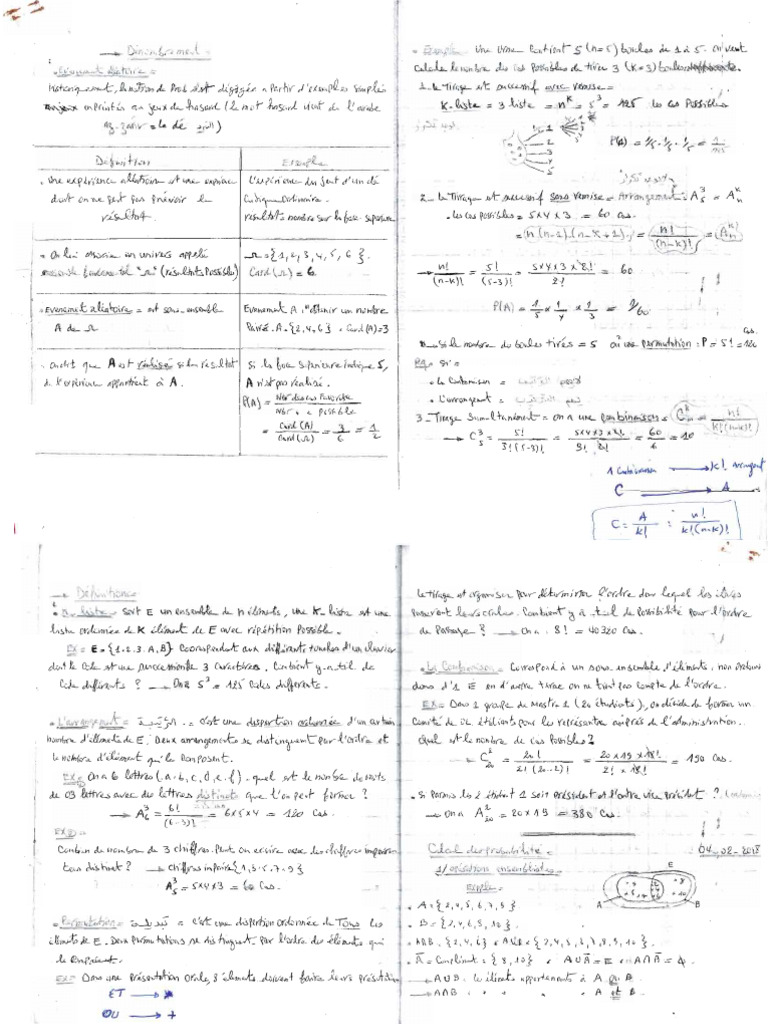 → Dénombrement =
Historiquement, la notion de Prob s'est dégagée a partir d'exemples simples
empruntés au jeux de hasard (le mot hasard vient de l'arabe
az-zahr = le dé
Définition
Exemple
• une expérience aléatoire est une expérience
dont on ne peut pas prévoir le
résultat.
L'expérience du jet d'un dé
cubique ordinaire.
résultats nombre sur la face supérieure
• on lui associe un univers appelé
"Ω" (résultats Possibles)
Ω = {1, 2, 3, 4, 5, 6}.
Card(Ω) = 6.
• Evenement aléatoire = est sous-ensemble
A de Ω
Evenement A: "obtenir un nombre
Pair". A = {2,4,6} • Card(A)=3
• on dit que A est réalisé si le résultat
de l'expérience appartient à A.
Si la face supérieure indique 5,
A n'est pas réalisé.
P(A) = Nbr des cas favorable / Nbr " " possible
= Card(A)/Card(Ω) = 3/6 = 1/2
• Exemple: Une Urne Contient 5 (n=5) boules de 1 à 5. on veut
Calculer le nombre des cas Possibles de tirer 3 (K=3) boules
1- le Tirage est successif avec remise =
K-liste = 3 liste = n^k = 5^3 = 125 les cas Possibles
P(A) = 1/5 · 1/5 · 1/5 = 1/125
2- le Tirage est successif sans remise = Arrangement: A^3_5 = A^k_n
• les cas possibles = 5x4x3 = 60 cas.
= n(n-1)(n-k+1) = n!/(n-k)! = A^k_n
→ n!/(n-k)! = 5!/(5-3)! = 5x4x3x2!/2! = 60
P(A) = 1/5 x 1/4 x 1/3 = 1/60
si le nombre de boules tirés = 5 on a une permutation: P = 5! = 120 Cas.
RQ: Si =
• la Combinaison =
• L'arrangement =
3- Tirage Simultanément = on a une combinaison = C^k_n = n!/k!(n-k)!
→ C^3_5 = 5!/3!(5-3)! = 5x4x3x2!/3! 2! = 60/6 = 10
1 Combinaison → k! Arrangent
C → A
C = A/k! : n!/k!(n-k)!
→ Définitions
Soit E un ensemble de n éléments, une K-liste est une
liste ordonnée de K élément de E avec répétition Possible.
EX = E = {1.2.3.A,B} Correspondent aux différents touches d'un clavier
dont le Code est une succession de 3 caractères. Combient y-a-t-il de
Code différents? → On a 5^3 = 125 Codes differents.
• L'arrangement = c'est une dispostion ordonnée d'un certain
nombre d'éléments de E. Deux arrangements se distinguent par l'ordre et
le nombre d'élément qui le Composent.
EX: On a 6 lettres (a.b,c,d,e.f). quel est le nombre de mots
de 03 lettres avec des lettres distincts que l'on peut former?
→ A^3_6 = 6!/(6-3)! = 6x5x4 = 120 Cas.
EX2:
Combien de nombre de 3 chiffres Peut on ecrire avec des chiffres impaires
tous distinct? → chiffres impaires {1,3,5,7,9}
A^3_5 = 5x4x3 = 60 Cas.
• Permutation = c'est une dispostion ordonnée de Tous les
éléments de E. Deux Permutations se distinguent par l'ordre des éléments qui
le Composent.
EX = Dans une présentation orale, 8 élements doivent faire leurs présentation
ET → x
OU → +
le tirage est organiser pour déterminer l'ordre dans lequel les élèves
passeront leurs oral. Combient y a-t-il de Possibilité pour l'ordre
de Passage? → on a: 8! = 40320 cas.
• La Combinaison = Correspond à un sous ensemble d'éléments, non ordonné
dans d'1 E en d'autre terme on ne tient pas compte de l'ordre.
EX = Dans 1 groupe de Mastre 1 (20 étudiants), on décide de former un
Comité de 02 étudients pour les représenter auprès de l'administration.
Quel est le nombre de cas Possibles?
→ C^2_20 = 20!/2!(20-2)! = 20x19x18!/2! x 18! = 190 Cas.
• Si Parmis les 2 étudiant 1 soit président et l'autre vice Président?
→ on a A^2_20 = 20x19 = 380 Cas.
Calcul de probabilité =
04-02-2018
1/ opération ensembliste =
Exemple =
• A = {2,4,5,6,7,9}
• B = {2,4,6,8,10}
• A∩B = {2,4,6} • A∪B = {2,4,5,6,7,8,9,10}.
• Ā = Complément = {8,10} • A∪Ā = E • A∩Ā = ϕ.
→ A∪B: les élements appartenants à A ou B.
→ A∩B " " " A et B.
E
A
B